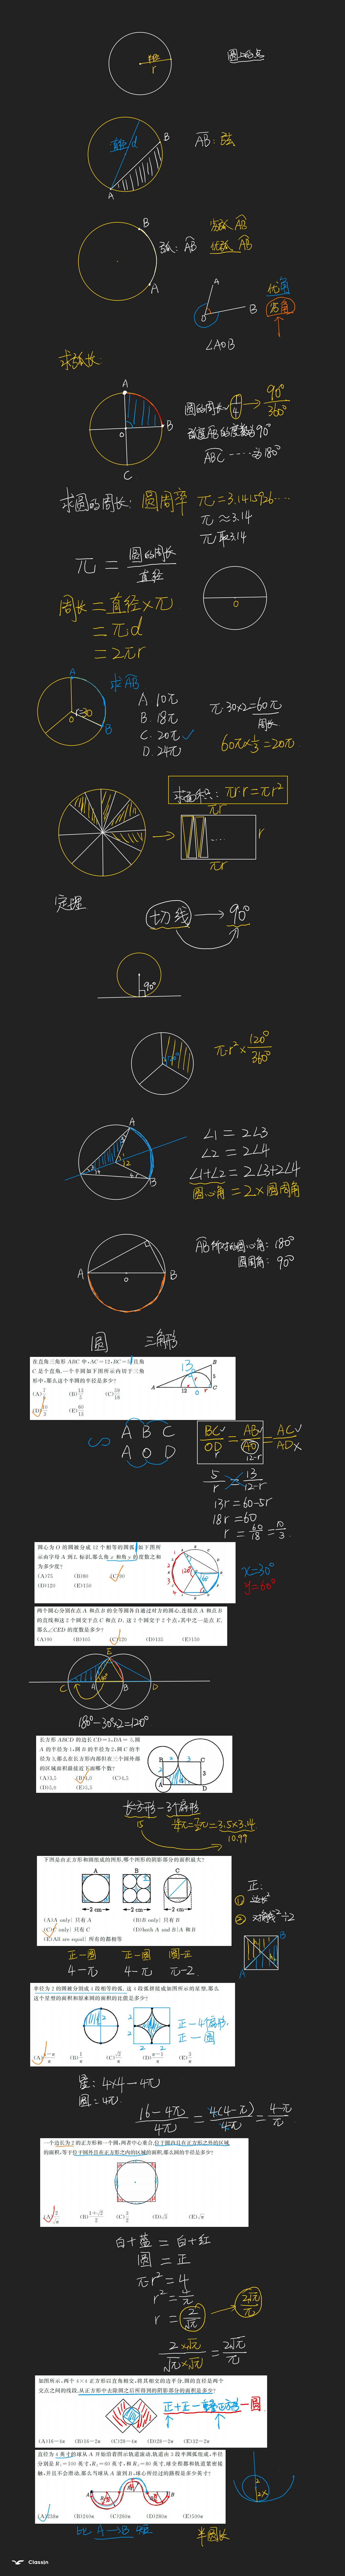 半径
r
圆上的点
直径 d
B
A
AB：弦
B
弧：AB
劣弧 AB
优弧 AB
A
A
O
B
优角
劣角
∠AOB
求弧长：
A
O
B
C
圆的周长 4 → 90°/360°
弧AB的度数为90°
ABC ----为180°
求圆的周长：圆周率 π=3.1415926...
π≈3.14
π取3.14
π = 圆的周长/直径
O
周长 = 直径×π
= π·d
= 2πr
A
求AB
O
r=30
B
A. 10π
B. 18π
C. 20π ✓
D. 24π
π·30×2=60π
周长
60π×1/3=20π
求面积：πr·r=πr²
πr
r
πr
定理
切线 → 90°
90°
120°
π·r²×120°/360°
A
B
∠1 = 2∠3
∠2 = 2∠4
∠1+∠2 = 2∠3+2∠4
圆心角 = 2×圆周角
A
O
B
AB所对的圆心角：180°
圆周角：90°
圆 三角形
在直角三角形 ABC 中,AC=12,BC=5且角
C 是个直角,一个半圆如下图所示内切于三角
形中,那么这个半圆的半径是多少?
(A)7/6 (B)13/5 (C)59/18
(D)10/3 (E)60/13
13
B
5
A
12
O
C
∽
A B C
A O D
BC/OD = AB/AO = AC/AD
12-r
5/r = 13/12-r
13r=60-5r
18r=60
r=60/18=10/3
圆心为 O 的圆被分成 12 个相等的圆弧,如下图所
示由字母 A 到 L 标识,那么角 x 和角 y 的度数之和
为多少度?
(A)75 (B)80 (C)90
(D)120 (E)150
x=30°
y=60°
两个圆心分别在点 A 和点 B 的全等圆各自通过对方的圆心,连接点 A 和点 B
的直线和这 2 个圆交于点 C 和点 D. 这 2 个圆交于 2 个点,其中之一是点 E,
那么∠CED 的度数是多少?
(A)90 (B)105 (C)120 (D)135 (E)150
E
C
A
B
D
180°-30°×2=120°
长方形 ABCD 的边长 CD=3,DA=5,圆
A 的半径为 1,圆 B 的半径为 2,圆 C 的半
径为 3,那么在长方形内部但在三个圆外部
的区域面积最接近下面哪个数?
(A)3.5 (B)4.0 (C)4.5
(D)5.0 (E)5.5
B
2
3
C
3
A
D
长方形-3个扇形
15
=3.5×3.14
10.99
下图是由正方形和圆组成的图形,哪个图形的阴影部分的面积最大?
A B C
2 cm 2 cm 2 cm
(A)(A only) 只有 A (B)(B only) 只有 B
(C)(C only) 只有 C (D)(both A and B)A 和 B
(E)(All are equal) 所有的都相等
正：
① 边长²
② 对角线²÷2
A
B
正-圆 正-圆 圆-正
4-π 4-π π-2
半径为 2 的圆被分割成 4 段相等的弧. 这 4 段弧拼接成如图所示的星型,那么
这个星型的面积和原来圆的面积的比值是多少?
(A)4-π/π (B)1/π (C)√2/π (D)π-1/π (E)3/π
2
2
2 2
正-4个扇形
正-圆
星：4×4-4π
圆：4π
16-4π/4π = 4(4-π)/4π = 4-π/π
一个边长为 2 的正方形和一个圆,两者中心重合,位于圆内且在正方形之外的区域
的面积,等于位于圆外且在正方形之内的区域的面积,那么圆的半径是多少?
(A)2/√π (B)1+√2/2 (C)3/2 (D)√3 (E)√π
白+蓝 = 白+红
圆 = 正
π·r²=4
r²=4/π
r=2/√π → 2√π/π
2×√π/√π×√π = 2√π/π
如图所示,两个 4×4 正方形以直角相交,将其相交的边平分,圆的直径是两个
交点之间的线段,从正方形中去除圆之后所得到的阴影部分的面积是多少?
正+正-重叠正方形-圆
(A)16-4π (B)16-2π (C)28-4π (D)28-2π (E)32-2π
直径为 4 英寸的球从 A 开始沿着图示轨道滚动,轨道由 3 段半圆弧组成,半径
分别是 R₁=100 英寸,R₂=60 英寸,和 R₃=80 英寸,球全程都和轨道紧密接
触,并且不会滑动,那么当球从 A 滚到 B,球心所经过的路程是多少英寸?
(A)238π (B)240π (C)260π (D)280π (E)500π
A
R₁
R₂
R₃
B
半圆长
ClassIn